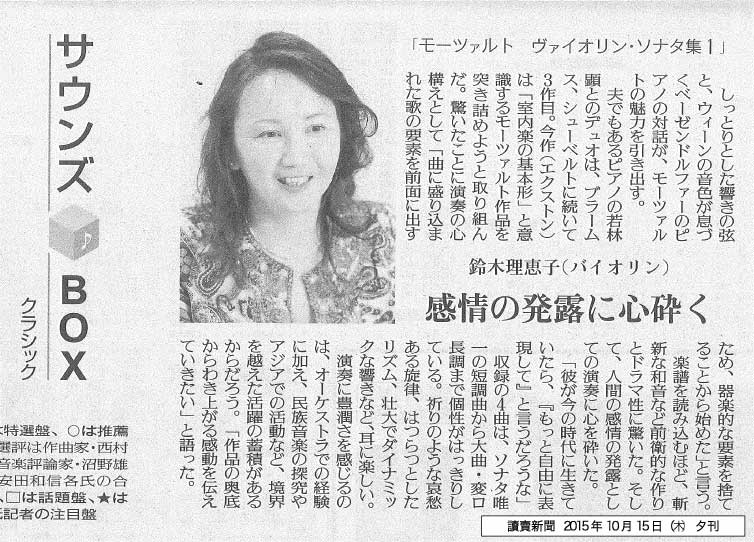 サウンズBOX
クラシック
「モーツァルト　ヴァイオリン・ソナタ集1」
しっとりとした響きの弦
と、ウィーンの音色が息づ
くベーゼンドルファーのピ
アノの対話が、モーツァル
トの魅力を引き出す。
夫でもあるピアノの若林
顕とのデュオは、ブラーム
ス、シューベルトに続いて
3作目。今作（エクストン）
は「室内楽の基本形」と意
識するモーツァルト作品を
突き詰めようと取り組ん
だ。驚いたことに演奏の心
構えとして「曲に盛り込ま
れた歌の要素を前面に出す
鈴木理恵子（バイオリン）
感情の発露に心砕く
ため、器楽的な要素を捨て
ることから始めた」と言う。
楽譜を読み込むほど、斬
新な和音など前衛的な作り
とドラマ性に驚いた。そし
て、人間の感情の発露とし
ての演奏に心を砕いた。
「彼が今の時代に生きて
いたら、『もっと自由に表
現して』と言うだろうな」
収録の4曲は、ソナタ唯
一の短調曲から大曲・変ロ
長調まで個性がはっきりし
ている。祈りのような哀愁
ある旋律、はつらつとした
リズム、壮大でダイナミッ
クな響きなど、耳に楽しい。
演奏に豊潤さを感じるの
は、オーケストラでの経験
に加え、民族音楽の探究や
アジアでの活動など、境界
を越えた活躍の蓄積がある
からだろう。「作品の奥底
からわき上がる感動を伝え
ていきたい」と語った。
は特選盤、○は推薦
選評は作曲家・西村
音楽評論家・沼野雄
安田和信各氏の合
、□は話題盤、★は
記者の注目盤
讀賣新聞　2015年10月15日（木）夕刊